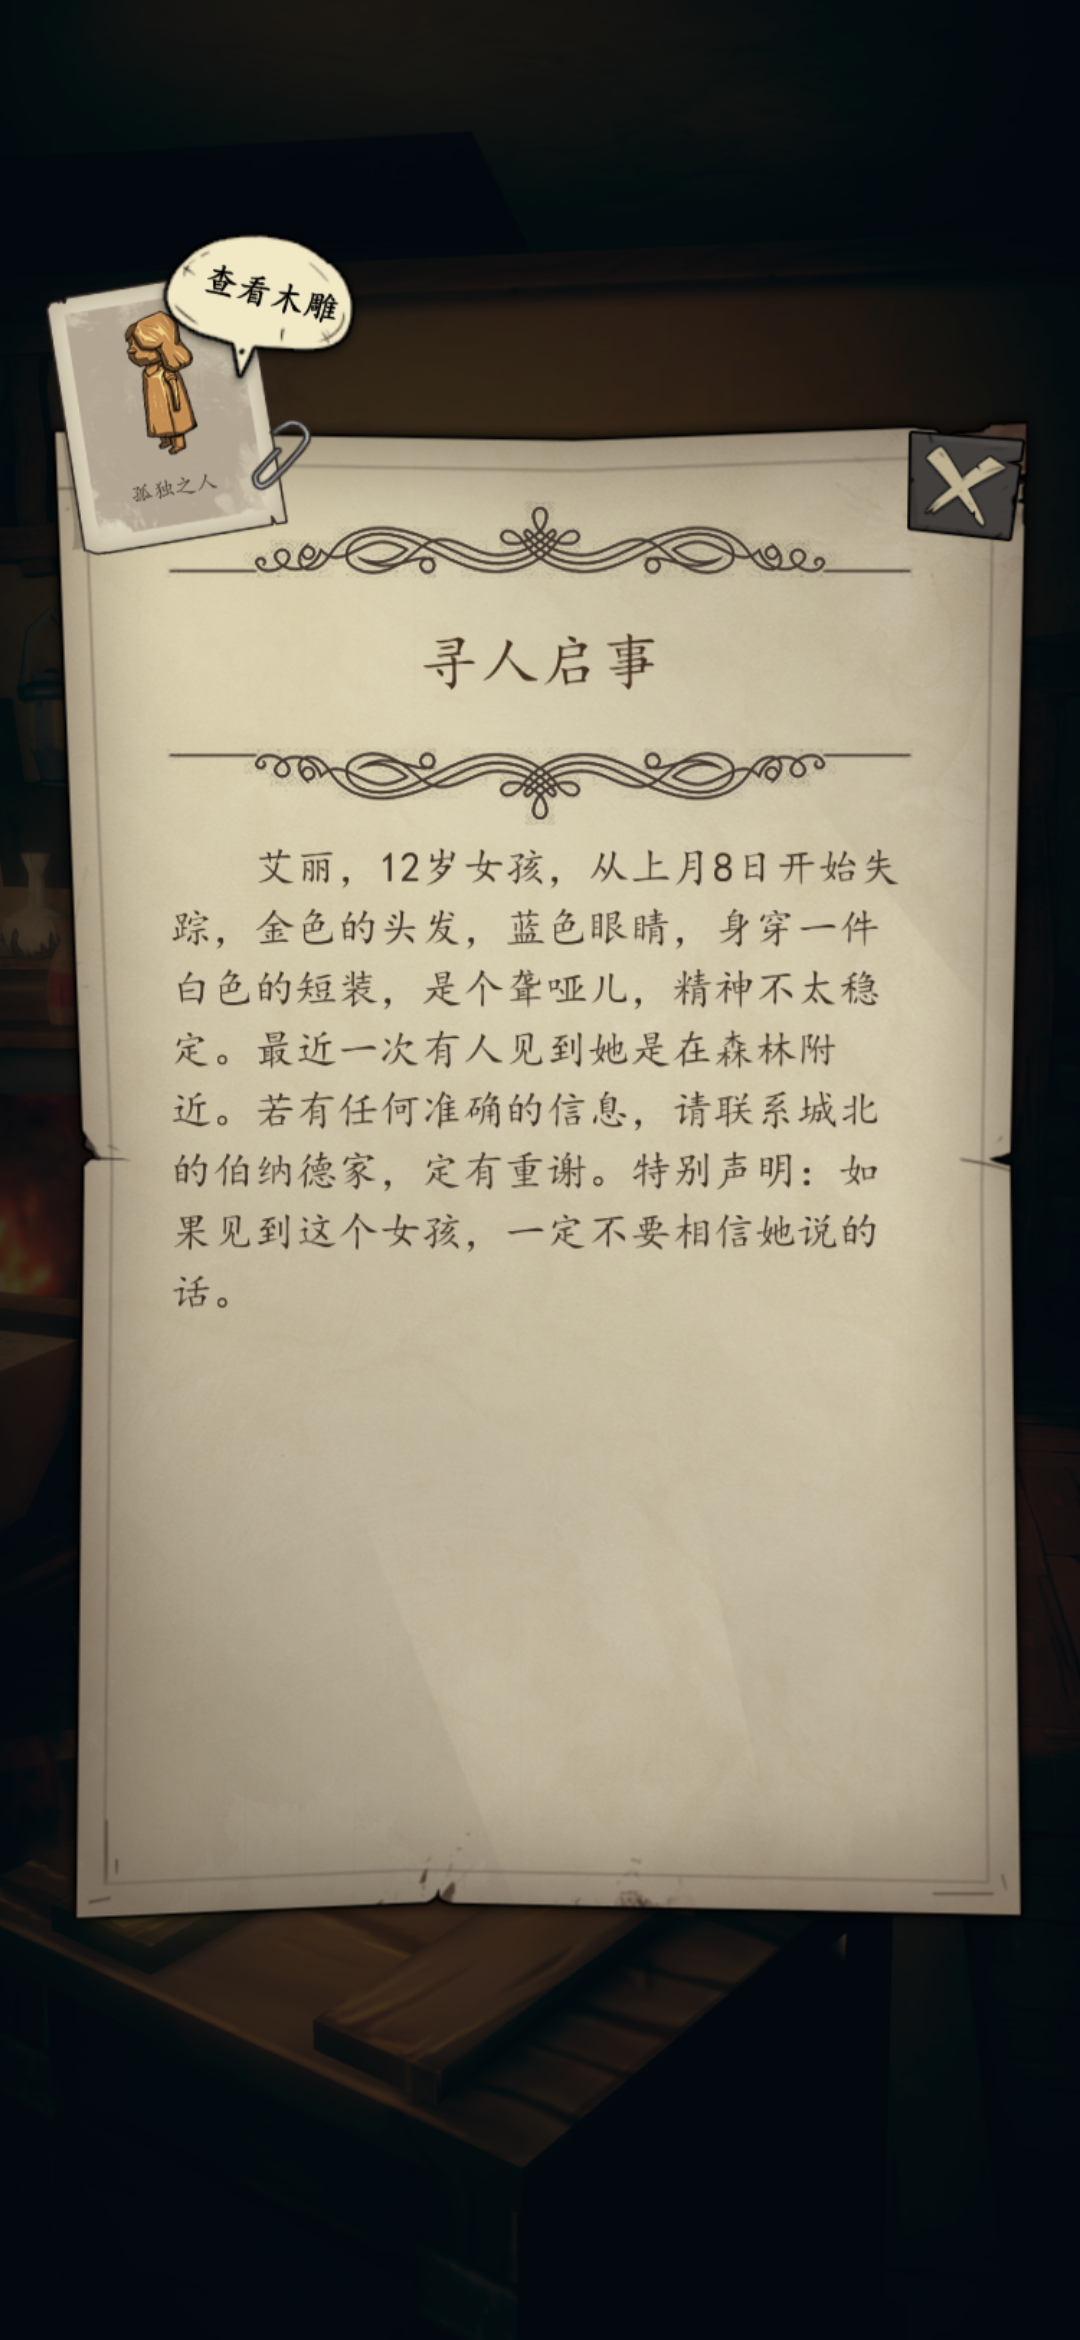 查看木雕
孤独之人
寻人启事
艾丽，12岁女孩，从上月8日开始失
踪，金色的头发，蓝色眼睛，身穿一件
白色的短装，是个聋哑儿，精神不太稳
定。最近一次有人见到她是在森林附
近。若有任何准确的信息，请联系城北
的伯纳德家，定有重谢。特别声明：如
果见到这个女孩，一定不要相信她说的
话。